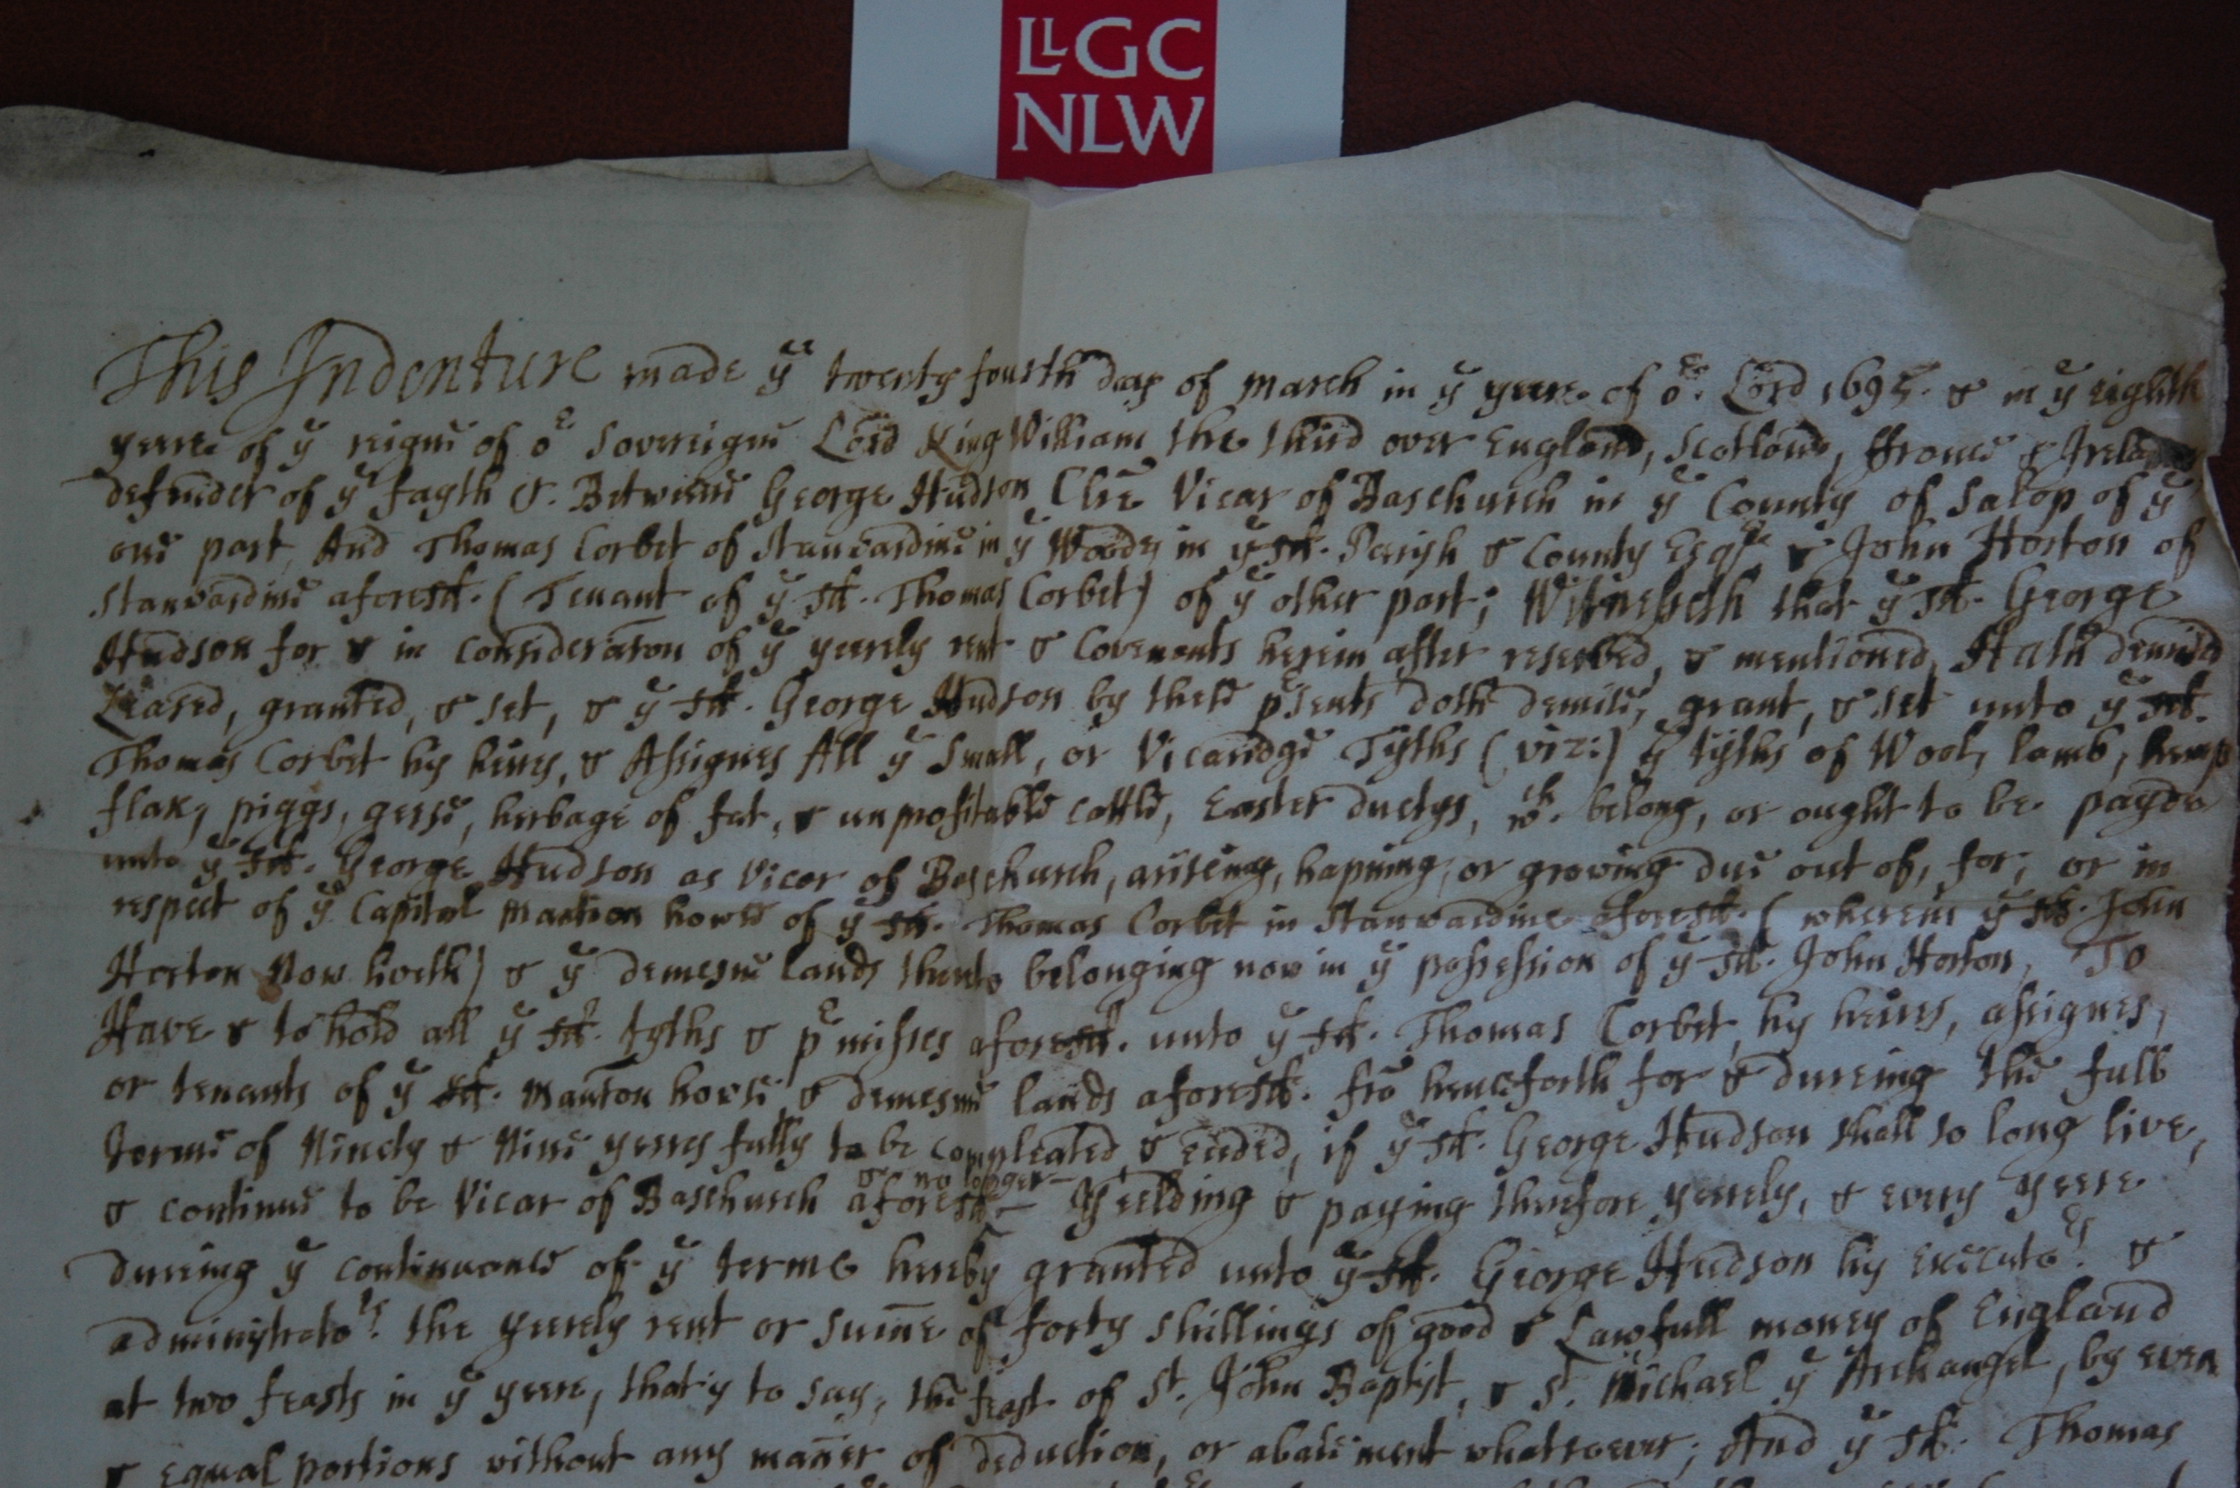 LLGC
NLW
This Indenture made yͤ twenty fourth day of march in yͤ yeere of oͬ. Lord 1695. & in yͤ eighth
yeere of yͤ reigne of oͬ Sovereigne Lord King William the third over England, Scotland, ffrance & Ireland
defender of yͤ fayth &. Betweene George Hudson Clre Vicar of Baschurch in yͤ County of Salop of yͤ
one part And Thomas Corbet of Stanwardine in yͤ Woode in yͤ sd. Parish & County Esqͬ & John Horton of
Stanwardine aforesd. (Tenant of yͤ sd. Thomas Corbet) of yͤ other part; Witnesseth that yͤ sd. George
Hudson for & in consideraton of yͤ yeerely rent & Covenants herein after reserved, & mentioned, Hath demised
Leased, granted, & set, & yͤ sd. George Hudson by these psents doth demise, grant, & set unto yͤ sd.
Thomas Corbet hys heires, & Assignes All yͤ Small, or Vicaridge Tyths (viz:) yͤ tyths of Wool, lamb, hemp
flax, piggs, geese, herbage of fat, & unprofitable cattle, Easter duetys, wͨʰ. belong, or ought to be payde
unto yͤ sd. George Hudson as Vicar of Baschurch, ariseing, hapning, or growing due out of, for, or in
respect of yͤ Capital mantion howse of yͤ sd. Thomas Corbet in Stanwardine aforesd. (wherein yͤ sd. John
Horton now hveth) & yͤ demesne lands thereto belonging now in yͤ possession of yͤ sd. John Horton, To
Have & to hold all yͤ sd. tyths & pͬmisses aforesd. unto yͤ sd. Thomas Corbet, hys heires, assignes,
or tenants of yͤ sd. Manton howse & demesne lands aforesd. fro henceforth for & dureing the full
terme of Ninety & Nine yeeres fully to be compleated & ended, if yͤ sd. George Hudson shall so long live,
& no longer
& continue to be Vicar of Baschurch aforesd Yeelding & paying therefore yeerely, & every yeere
dureing yͤ continuance of yͤ terme hereby granted unto yͤ sd. George Hudson hys Executoͬˢ. &
administratoͬˢ. the yeerely rent or sume of forty shillings of good & Lawfull money of England
at two feasts in yͤ yeere, that'ys to say, the feast of St. John Baptist, & St. Michael yͤ Archangel, by even
& equal portions without any maner of deduction, or abatement whatsoever; And yͤ sd. Thomas